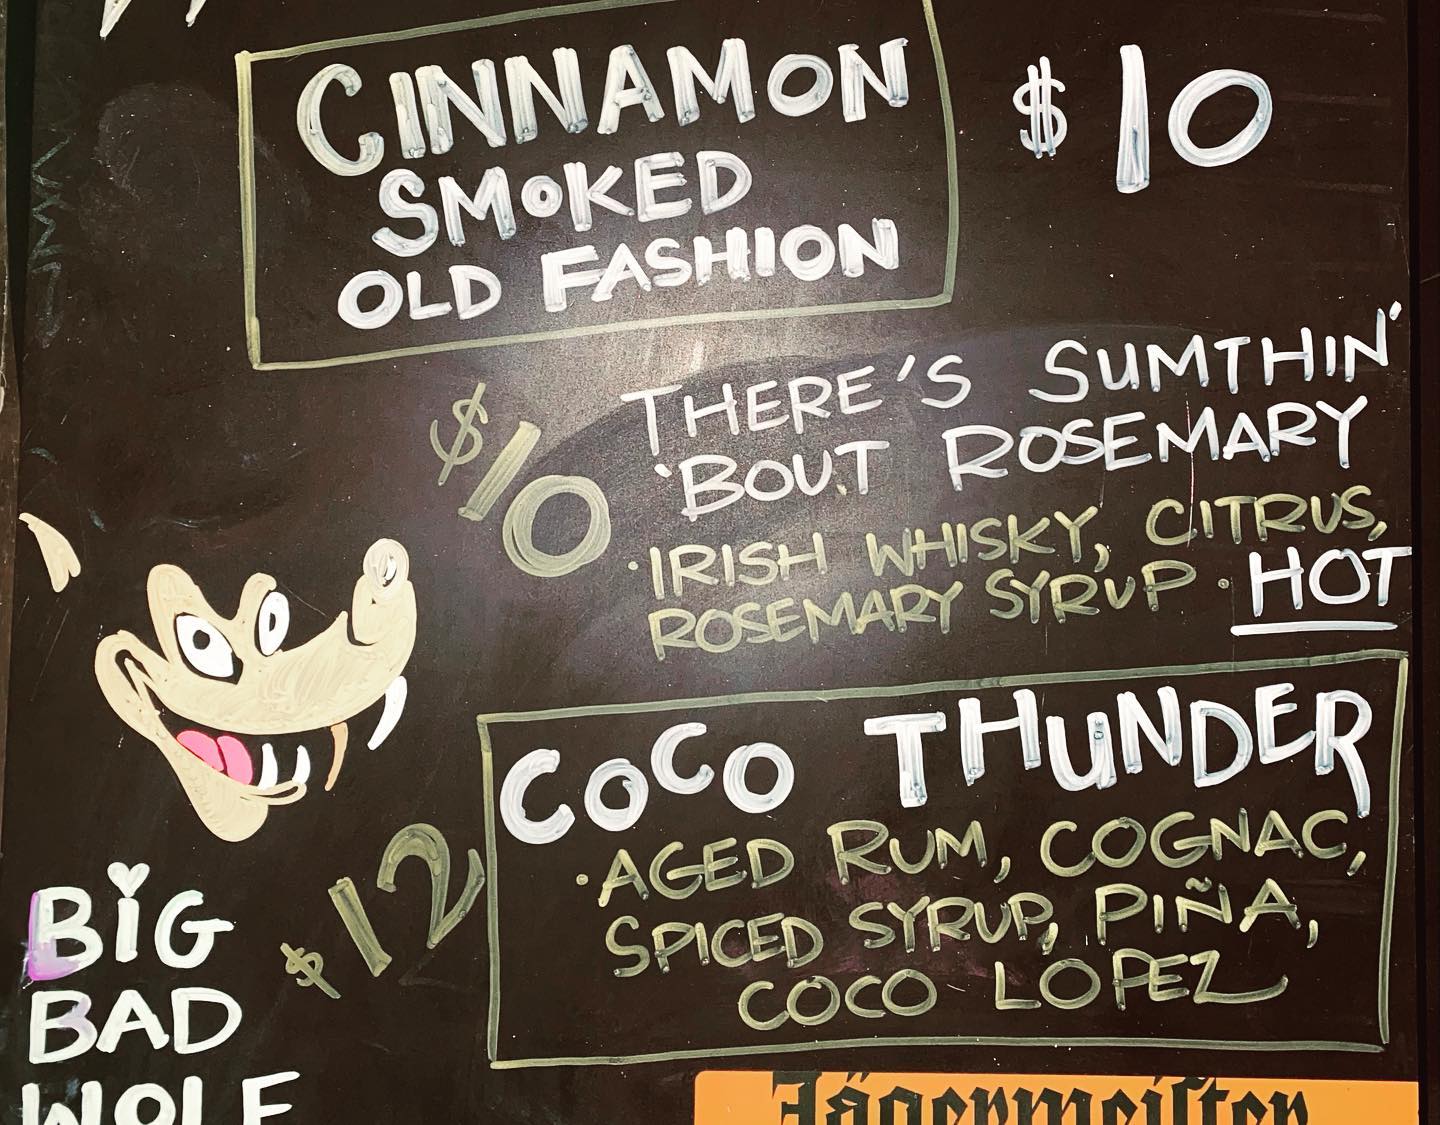 CINNAMON
SMOKED
OLD FASHION
$10
THERE'S SUMTHIN'
'BOUT ROSEMARY
$10
·IRISH WHISKY, CITRUS,
ROSEMARY SYRUP · HOT
COCO THUNDER
·AGED RUM, COGNAC,
SPICED SYRUP, PIÑA,
COCO LOPEZ
$12
BiG
BAD
WOLF
Jägermeister